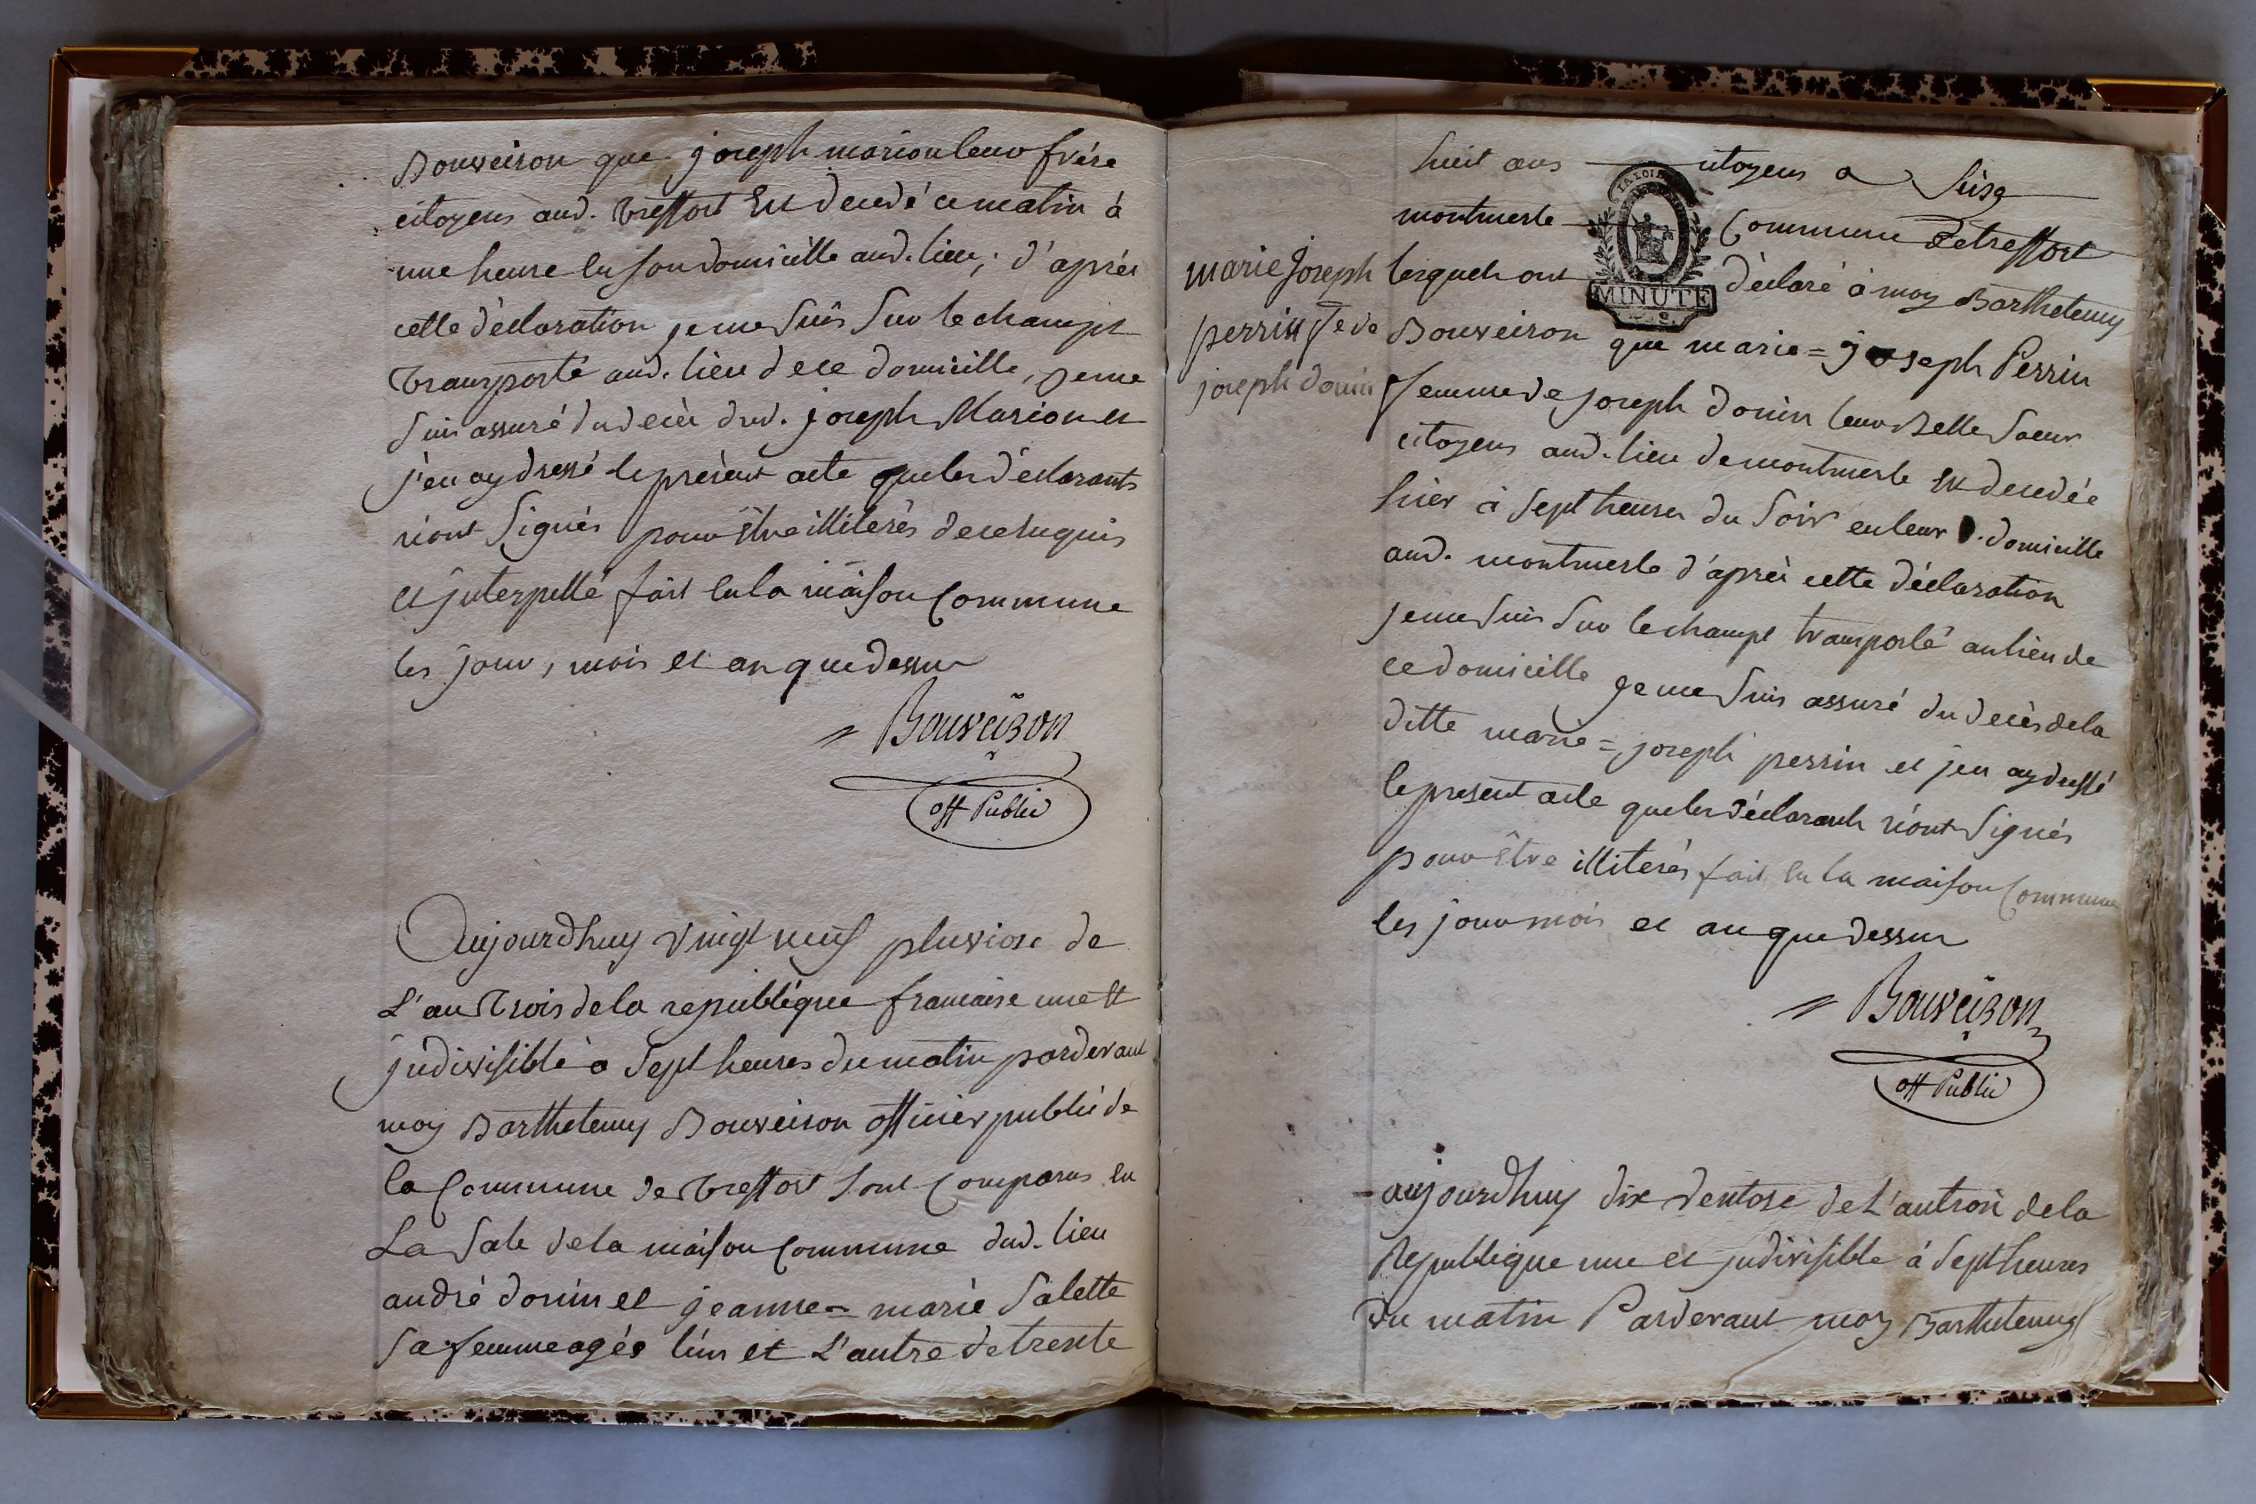 Bouveiron que joseph marion leur frére
citoyens aud. treffort Est decedé ce matin à
une heure en son domicille aud. lieu; d'aprés
cette déclaration je me suis sur le champt
transporté aud. lieu de ce domicille, je me
suis assuré du decès dud. joseph Marion et
j'en ay dressé le présent acte que les déclarants
n'ont signés pour être illiterés de ce enquis
et interpellé fait en la maison commune
les jour, mois et an que dessus
Bouveiron
off Public
Aujourdhuy vingt neuf pluviose de
L'an trois de la republique francaise une et
indivisible à sept heures du matin pardevant
moy Barthelemy Bouveiron officier public de
la Commune de treffort sont comparus en
La sale de la maison commune dud. lieu
andré donin et jeanne = marie Salette
sa femme agés l'un et L'autre de trente
huit ans citoyens a
montmerle Commune de treffort
LA LOI
MINUTE
marie joseph
perrin fe de
joseph donin
lesquels ont déclaré à moy Barthelemy
Bouveiron que marie = joseph Perrin
femme de joseph donin leur Belle soeur
citoyens aud. lieu de montmerle Est decedée
hier à sept heures du soir en leur domicille
aud. montmerle d'aprés cette déclaration
je me suis sur le champt transporté au lieu de
ce domicille je me suis assuré du decès de la
ditte marie = joseph perrin et j'en ay dressé
le present acte que les déclarants n'ont signés
pour être illiterés fait en la maison commune
les jour mois et an que dessus
Bouveiron
off Public
aujourdhuy dix ventose de L'an trois de la
Republique une et indivisible à sept heures
Du matin Pardevant moy Barthelemy